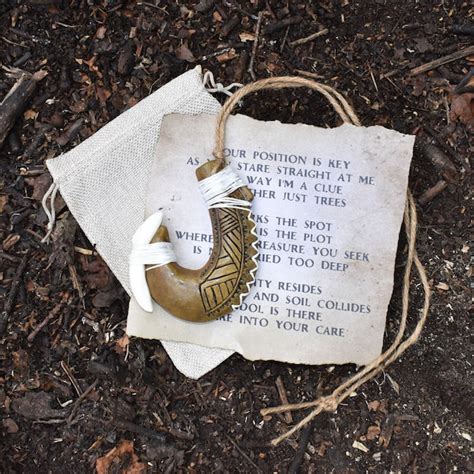 OUR POSITION IS KEY
AS STARE STRAIGHT AT ME
WAY I'M A CLUE
HER JUST TREES
KS THE SPOT
WHERE IS THE PLOT
EASURE YOU SEEK
IS IED TOO DEEP
ITY RESIDES
AND SOIL COLLIDES
OOL IS THERE
KE INTO YOUR CARE